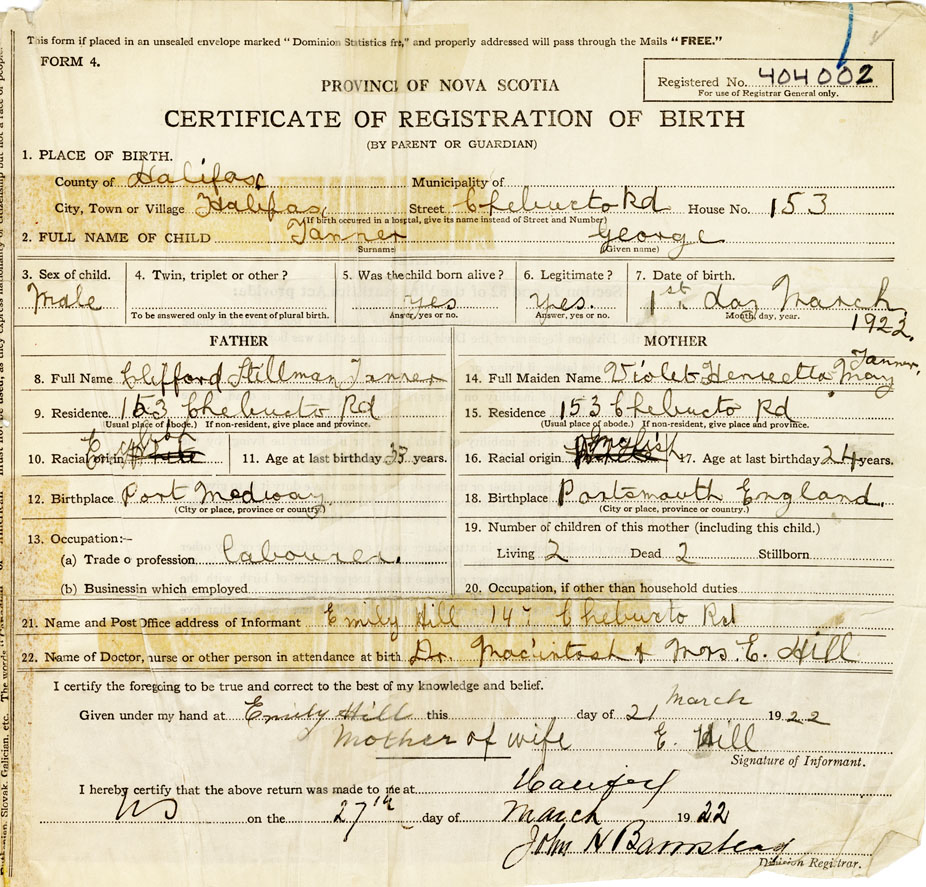 This form if placed in an unsealed envelope marked "Dominion Statistics fre," and properly addressed will pass through the Mails "FREE."
FORM 4.
Registered No. 404002
For use of Registrar General only.
PROVINC OF NOVA SCOTIA
CERTIFICATE OF REGISTRATION OF BIRTH
(BY PARENT OR GUARDIAN)
1. PLACE OF BIRTH.
County of Halifax Municipality of
City, Town or Village Halifax Street Chebucto Rd House No. 153
(If birth occured in a hospital, give its name instead of Street and Number)
2. FULL NAME OF CHILD Tanner George
Surname (Given name)
3. Sex of child. 4. Twin, triplet or other? 5. Was the child born alive? 6. Legitimate? 7. Date of birth.
Male yes yes. 1st day March
To be answered only in the event of plural birth. Answer, yes or no. Answer, yes or no. Month, day, year.
1922.
FATHER MOTHER
8. Full Name Clifford Stillman Tanner 14. Full Maiden Name Violet Henrietta May Tanner,
9. Residence 153 Chebucto Rd 15. Residence 153 Chebucto Rd
(Usual place of abode.) If non-resident, give place and province. (Usual place of abode.) If non-resident, give place and province.
10. Racial origin English 11. Age at last birthday 33 years. 16. Racial origin English 17. Age at last birthday 24 years.
12. Birthplace Port Medway 18. Birthplace Portsmouth England
(City or place, province or country.) (City or place, province or country.)
13. Occupation:— 19. Number of children of this mother (including this child.)
(a) Trade o profession labourer. Living 2 Dead 2 Stillborn
(b) Business in which employed 20. Occupation, if other than household duties
21. Name and Post Office address of Informant Emily Hill 147 Chebucto Rd
22. Name of Doctor, nurse or other person in attendance at birth Dr. Macintosh & Mrs. E. Hill
I certify the foregoing to be true and correct to the best of my knowledge and belief.
Given under my hand at Emily Hill this day of 21 March 1922
Mother of wife E. Hill
Signature of Informant.
I hereby certify that the above return was made to me at Halifax
NS on the 27th day of March 1922
John H Barnstead
Division Registrar.